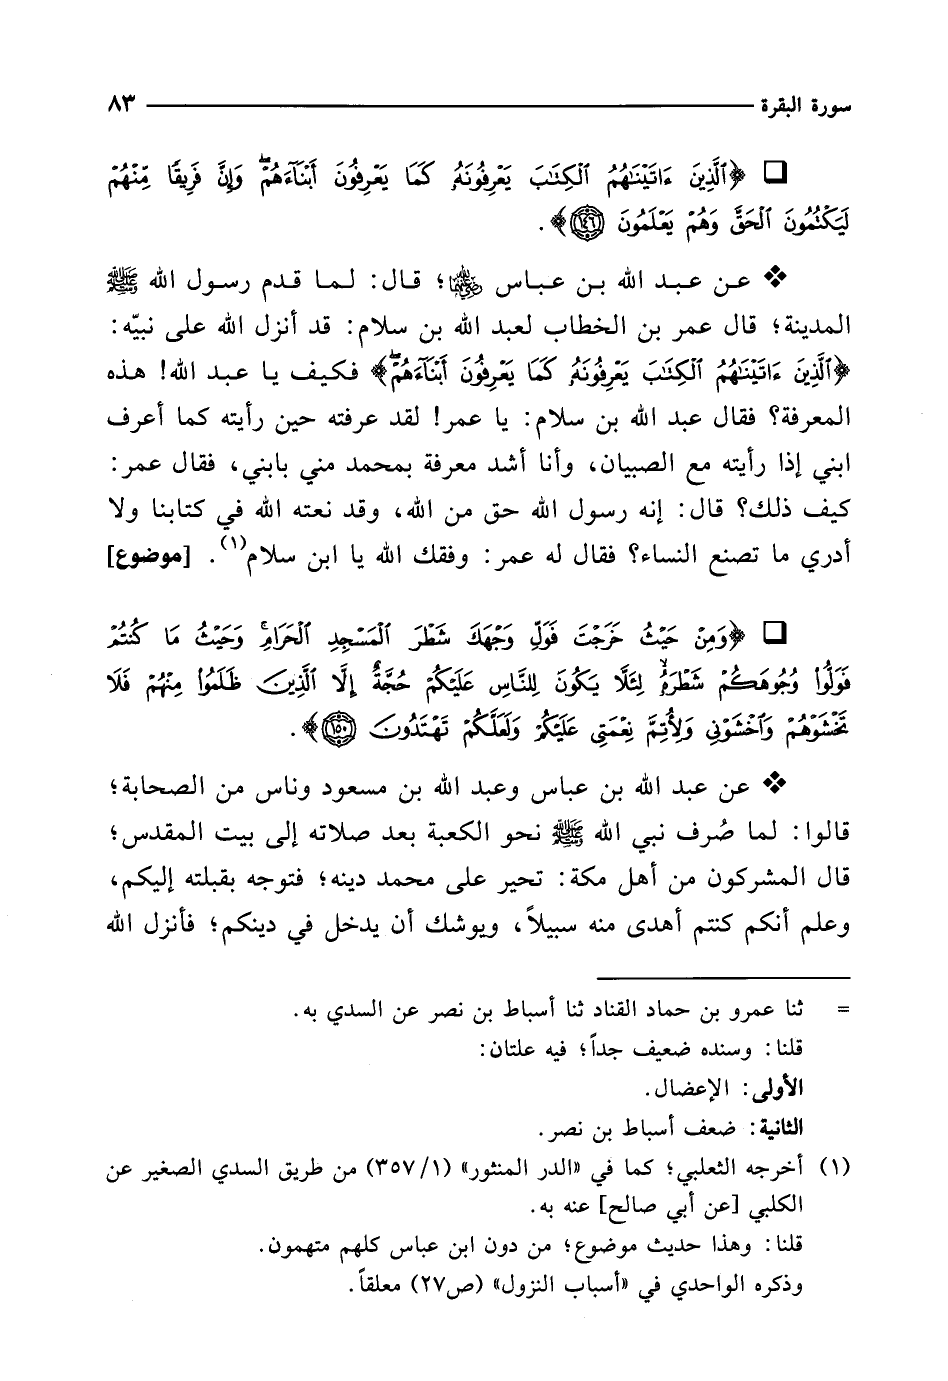 سورة البقرة ٨٣
﴿ٱلَّذِينَ ءَاتَيْنَٰهُمُ ٱلْكِتَٰبَ يَعْرِفُونَهُۥ كَمَا يَعْرِفُونَ أَبْنَآءَهُمْۖ وَإِنَّ فَرِيقًا مِّنْهُمْ
لَيَكْتُمُونَ ٱلْحَقَّ وَهُمْ يَعْلَمُونَ ١٤٦﴾.
❖ عن عبد الله بن عباس رضي الله عنهما؛ قال: لما قدم رسول الله ﷺ
المدينة؛ قال عمر بن الخطاب لعبد الله بن سلام: قد أنزل الله على نبيّه:
﴿ٱلَّذِينَ ءَاتَيْنَٰهُمُ ٱلْكِتَٰبَ يَعْرِفُونَهُۥ كَمَا يَعْرِفُونَ أَبْنَآءَهُمْۖ﴾ فكيف يا عبد الله! هذه
المعرفة؟ فقال عبد الله بن سلام: يا عمر! لقد عرفته حين رأيته كما أعرف
ابني إذا رأيته مع الصبيان، وأنا أشد معرفة بمحمد مني بابني، فقال عمر:
كيف ذلك؟ قال: إنه رسول الله حق من الله، وقد نعته الله في كتابنا ولا
أدري ما تصنع النساء؟ فقال له عمر: وفقك الله يا ابن سلام(١). [موضوع]
﴿وَمِنْ حَيْثُ خَرَجْتَ فَوَلِّ وَجْهَكَ شَطْرَ ٱلْمَسْجِدِ ٱلْحَرَامِۚ وَحَيْثُ مَا كُنتُمْ
فَوَلُّوا۟ وُجُوهَكُمْ شَطْرَهُۥ لِئَلَّا يَكُونَ لِلنَّاسِ عَلَيْكُمْ حُجَّةٌ إِلَّا ٱلَّذِينَ ظَلَمُوا۟ مِنْهُمْ فَلَا
تَخْشَوْهُمْ وَٱخْشَوْنِى وَلِأُتِمَّ نِعْمَتِى عَلَيْكُمْ وَلَعَلَّكُمْ تَهْتَدُونَ ١٥٠﴾.
❖ عن عبد الله بن عباس وعبد الله بن مسعود وناس من الصحابة؛
قالوا: لما صُرف نبي الله ﷺ نحو الكعبة بعد صلاته إلى بيت المقدس؛
قال المشركون من أهل مكة: تحير على محمد دينه؛ فتوجه بقبلته إليكم،
وعلم أنكم كنتم أهدى منه سبيلاً، ويوشك أن يدخل في دينكم؛ فأنزل الله
= ثنا عمرو بن حماد القناد ثنا أسباط بن نصر عن السدي به.
قلنا: وسنده ضعيف جداً؛ فيه علتان:
الأولى: الإعضال.
الثانية: ضعف أسباط بن نصر.
(١) أخرجه الثعلبي؛ كما في «الدر المنثور» (١/ ٣٥٧) من طريق السدي الصغير عن
الكلبي [عن أبي صالح] عنه به.
قلنا: وهذا حديث موضوع؛ من دون ابن عباس كلهم متهمون.
وذكره الواحدي في «أسباب النزول» (ص٢٧) معلقاً.